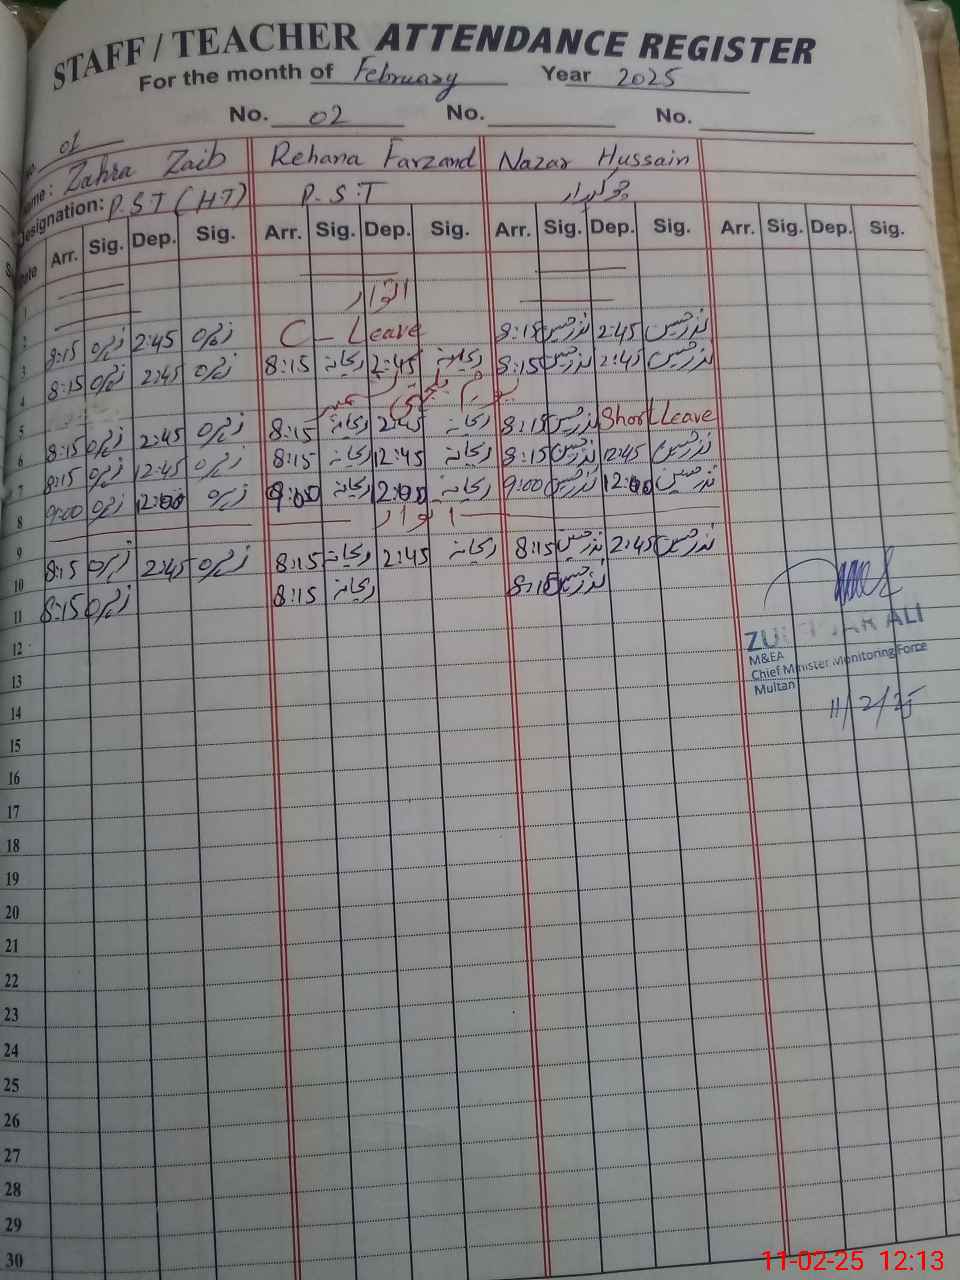 STAFF / TEACHER ATTENDANCE REGISTER
For the month of February Year 2025
01 No. 02 No. No.
Zahra Zaib Rehana Farzand Nazar Hussain
Designation: P.S.T (H.T) P.S.T چوکیدار
Arr. Sig. Dep. Sig. Arr. Sig. Dep. Sig. Arr. Sig. Dep. Sig. Arr. Sig. Dep. Sig.
1
اتوار
2
8:15 زہرہ 2:45 زہرہ C-Leave 8:15 نذر حسین 2:45 نذر حسین
3
8:15 زہرہ 2:45 زہرہ 8:15 ریحانہ 2:45 ریحانہ 8:15 نذر حسین 2:45 نذر حسین
4
یوم یکجہتی کشمیر
5
8:15 زہرہ 2:45 زہرہ 8:15 ریحانہ 2:45 ریحانہ 8:15 نذر حسین Short Leave
6
8:15 زہرہ 12:45 زہرہ 8:15 ریحانہ 12:45 ریحانہ 8:15 نذر حسین 12:45 نذر حسین
7
9:00 زہرہ 12:00 زہرہ 9:00 ریحانہ 12:00 ریحانہ 9:00 نذر حسین 12:00 نذر حسین
8
اتوار
9
8:15 زہرہ 2:45 زہرہ 8:15 ریحانہ 2:45 ریحانہ 8:15 نذر حسین 2:45 نذر حسین
10
8:15 زہرہ 8:15 ریحانہ 8:15 نذر حسین
11
12
13
14
15
16
17
18
19
20
21
22
23
24
25
26
27
28
29
30
ALI
M&EA
Chief Minister Monitoring Force
Multan
11/2/25
11-02-25 12:13